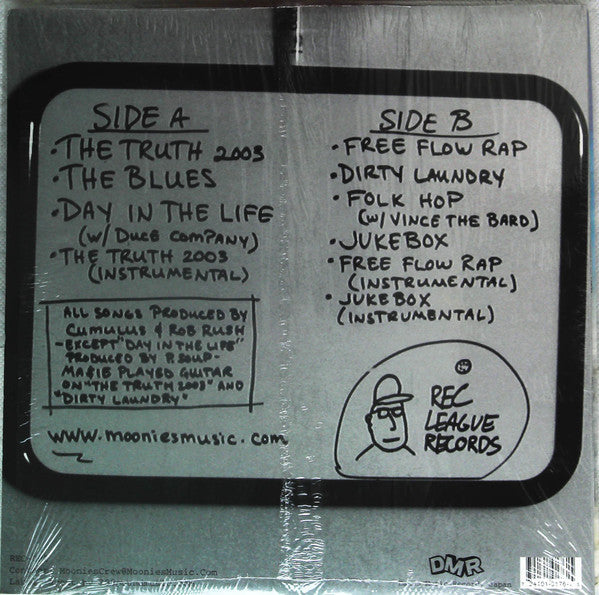 SIDE A
• THE TRUTH 2003
• THE BLUES
• DAY IN THE LIFE
(W/ DUCE COMPANY)
• THE TRUTH 2003
(INSTRUMENTAL)
ALL SONGS PRODUCED BY
CUMULUS & ROB RUSH
-EXCEPT "DAY IN THE LIFE"
PRODUCED BY P. SOUP-
MAGIE PLAYED GUITAR
ON "THE TRUTH 2003" AND
"DIRTY LAUNDRY"
www.mooniesmusic.com
SIDE B
• FREE FLOW RAP
• DIRTY LAUNDRY
• FOLK HOP
(W/ VINCE THE BARD)
• JUKEBOX
• FREE FLOW RAP
(INSTRUMENTAL)
• JUKEBOX
(INSTRUMENTAL)
REC
LEAGUE
RECORDS
MooniesCrew@MooniesMusic.Com
DMR
Japan